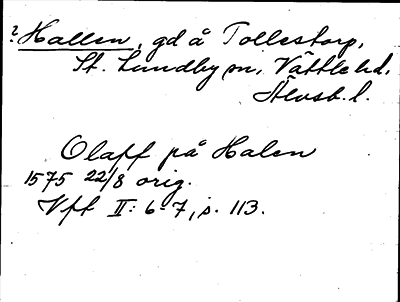 ? Hallen, gd å Tollestorp,
St. Lundby sn, Vättle hd,
Älvsb. l.
Olaff på Halen
1575 22/8 orig.
Vft II: 6-7, s. 113.